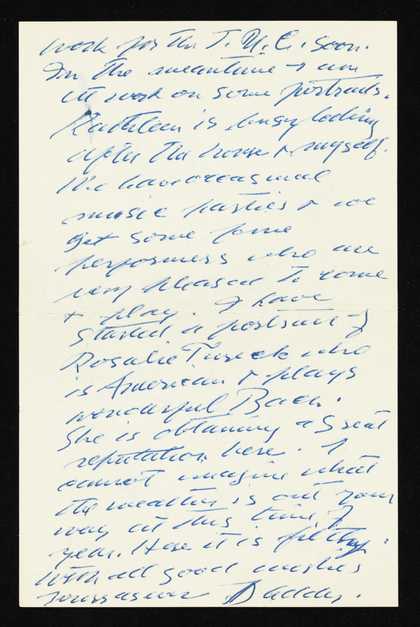 work for the T.U.C. soon.
In the meantime I am
at work on some portraits.
Kathleen is busy looking
after the house & myself.
We have occasional
music parties & we
get some fine
performers who are
very pleased to come
& play. I have
started a portrait of
Rosalie Tureck who
is American & plays
wonderful Bach.
She is obtaining a great
reputation here. I
cannot imagine what
the weather is out your
way at this time of
year. Here it is filthy.
With all good wishes
yours as ever Daddy.